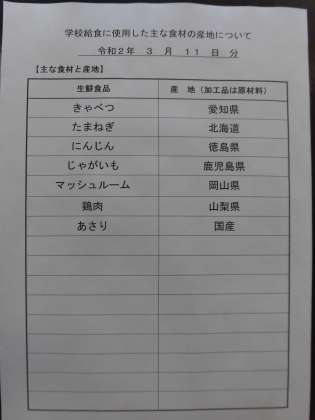 学校給食に使用した主な食材の産地について
令和2年 3月 11日 分
【主な食材と産地】
生鮮食品 産 地（加工品は原材料）
きゃべつ 愛知県
たまねぎ 北海道
にんじん 徳島県
じゃがいも 鹿児島県
マッシュルーム 岡山県
鶏肉 山梨県
あさり 国産